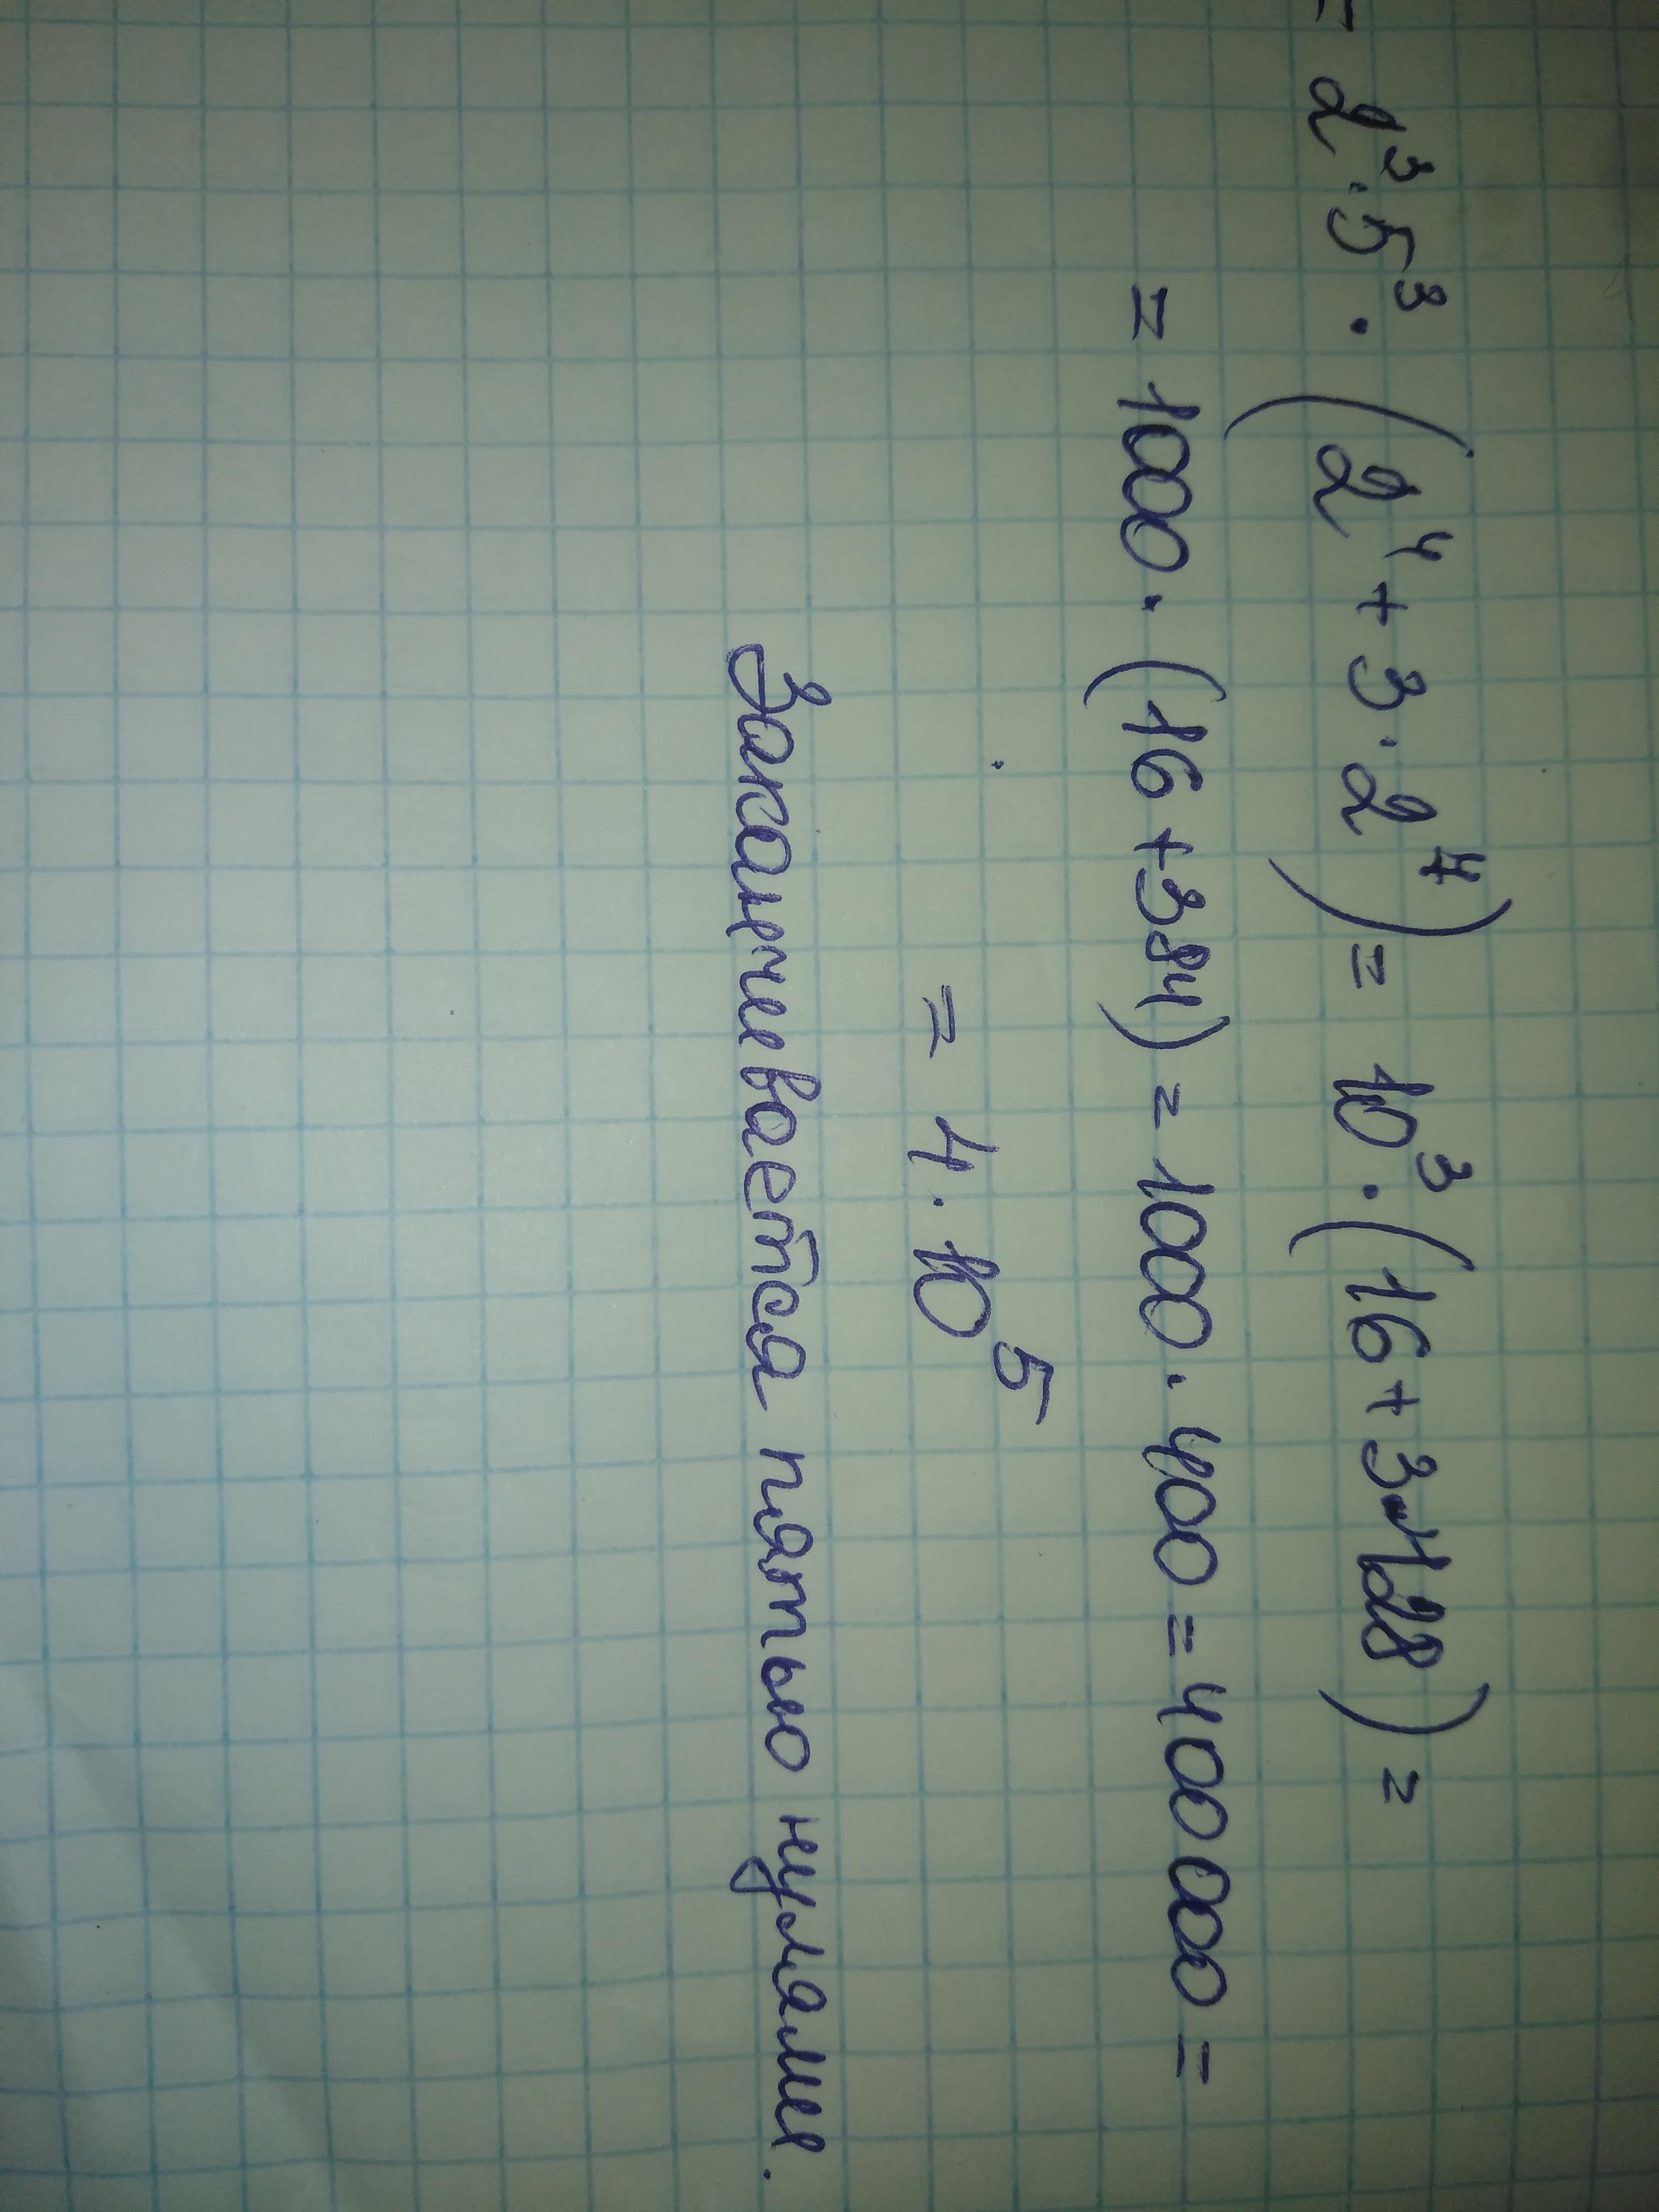 = 2³·5³·(2⁴+3·2⁷) = 10³·(16+3·128) =
= 1000·(16+384) = 1000·400 = 400 000 =
= 4·10⁵
Заканчивается пятью нулями.